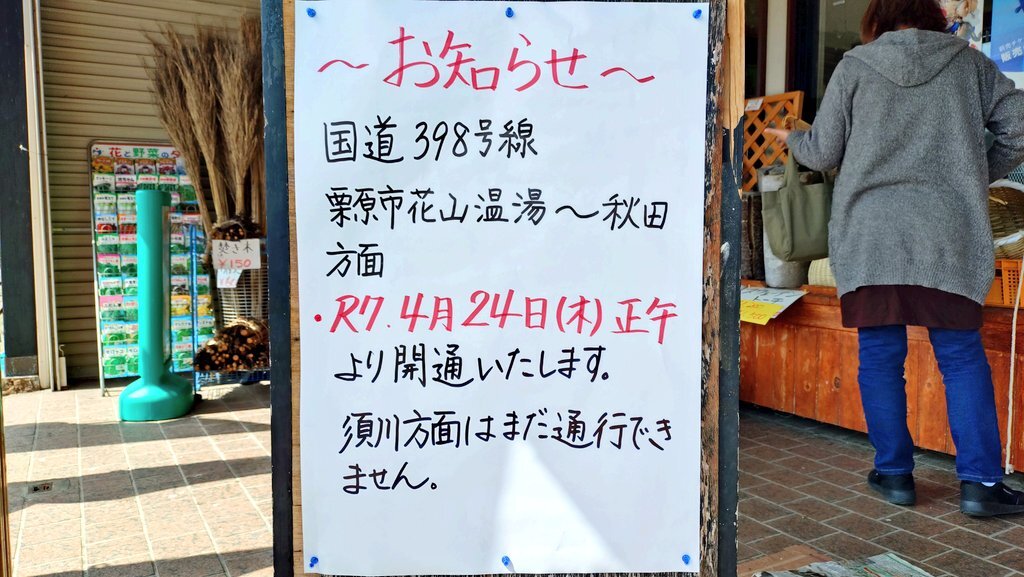 ～お知らせ～
国道398号線
栗原市花山温湯～秋田
方面
・R7.4月24日(木)正午
より開通いたします。
須川方面はまだ通行でき
ません。
花と野菜の
¥150
販売